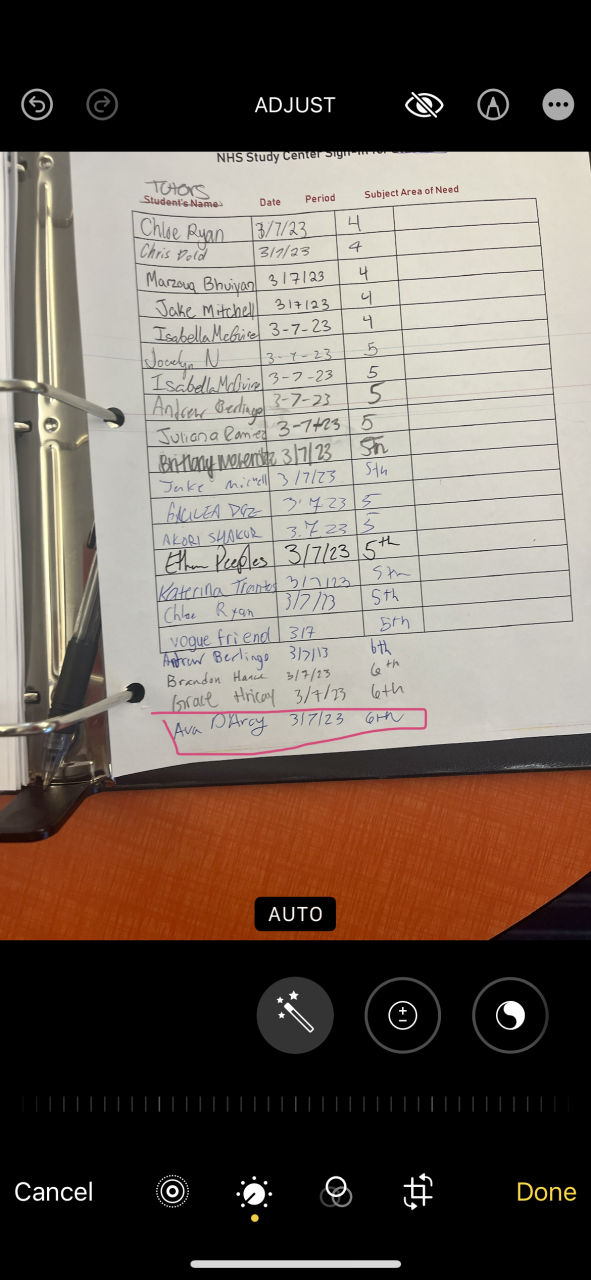 ADJUST
NHS Study Center Sign-in for
TUTORS
Student's Name Date Period Subject Area of Need
Chloe Ryan 3/7/23 4
Chris Dold 3/7/23 4
Marzouq Bhuiyan 3/7/23 4
Jake Mitchell 3/7/23 4
Isabella McGuire 3-7-23 4
Jocelyn N 3-7-23 5
Isabella McGuire 3-7-23 5
Andrew Berlingo 3-7-23 5
Juliana Ramirez 3-7-23 5
Brittany 3/7/23 5th
Jake 3/7/23 5th
3.7.23 5
AKORI SHAKUR 3.7.23 5
Ethan Peeples 3/7/23 5th
Katerina 3/7/23 5th
Chloe Ryan 3/7/23 5th
vogue friend 3/7 5th
Andrew Berlingo 3/7/23 6th
Brandon 3/7/23 6th
Grace 3/7/23 6th
Ava D'Arcy 3/7/23 6th
AUTO
Cancel Done